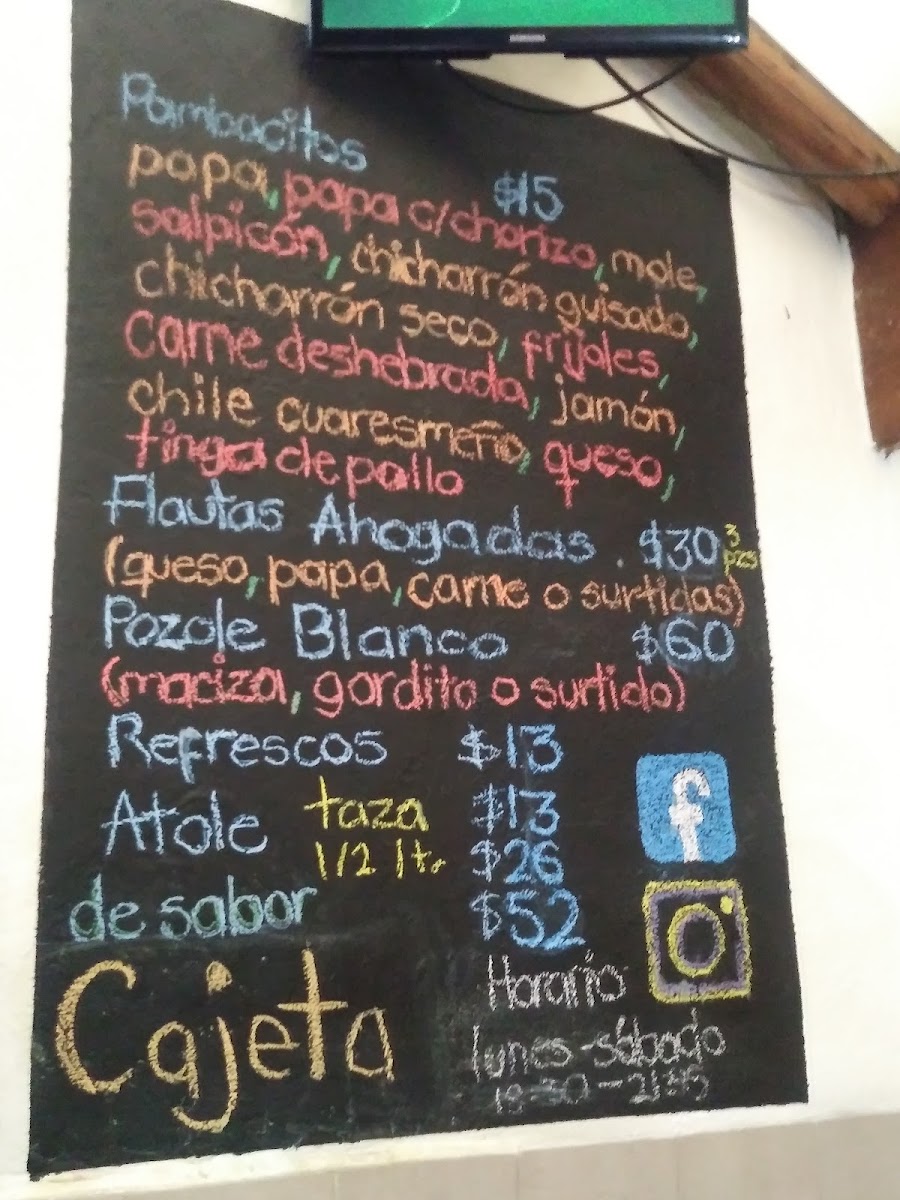 Pambacitos $15
papa, papa c/chorizo, mole,
salpicón, chicharrón guisado,
chicharrón seco, frijoles,
carne deshebrada, jamón,
chile cuaresmeño, queso,
tinga de pollo
Flautas Ahogadas . $30 3 pzs
(queso, papa, carne o surtidas)
Pozole Blanco $60
(maciza, gordito o surtido)
Refrescos $13
Atole taza $13
1/2 ltr $26
de sabor $52
Cajeta
Horario
lunes-sábado